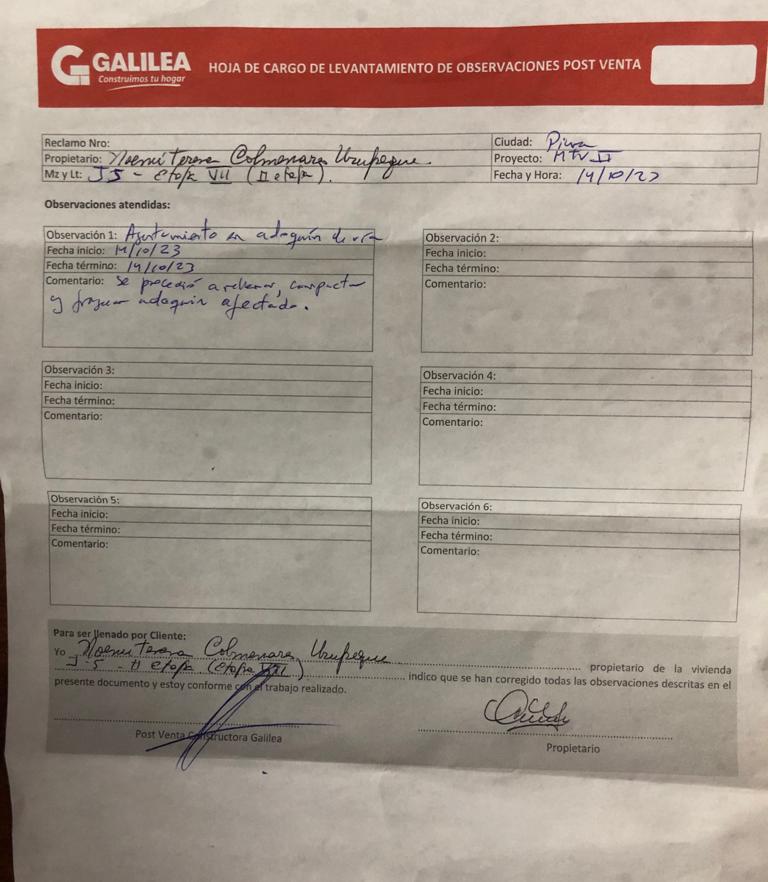 GALILEA
Construimos tu hogar
HOJA DE CARGO DE LEVANTAMIENTO DE OBSERVACIONES POST VENTA
Reclamo Nro:
Propietario: Noemí Teresa Colmenares Urupeque.
Mz y Lt: J5 - etapa VII (II etapa).
Ciudad: Piura
Proyecto: MTV II
Fecha y Hora: 14/10/23
Observaciones atendidas:
Observación 1: Asentamiento en adoquín de vía
Fecha inicio: 14/10/23
Fecha término: 14/10/23
Comentario: Se procedió a rellenar, compactar
y fraguar adoquin afectado.
Observación 2:
Fecha inicio:
Fecha término:
Comentario:
Observación 3:
Fecha inicio:
Fecha término:
Comentario:
Observación 4:
Fecha inicio:
Fecha término:
Comentario:
Observación 5:
Fecha inicio:
Fecha término:
Comentario:
Observación 6:
Fecha inicio:
Fecha término:
Comentario:
Para ser llenado por Cliente:
Yo Noemi Teresa Colmenares Urupeque propietario de la vivienda
J-5 - II etapa (etapa VII) indico que se han corregido todas las observaciones descritas en el
presente documento y estoy conforme con el trabajo realizado.
Post Venta Constructora Galilea
Propietario